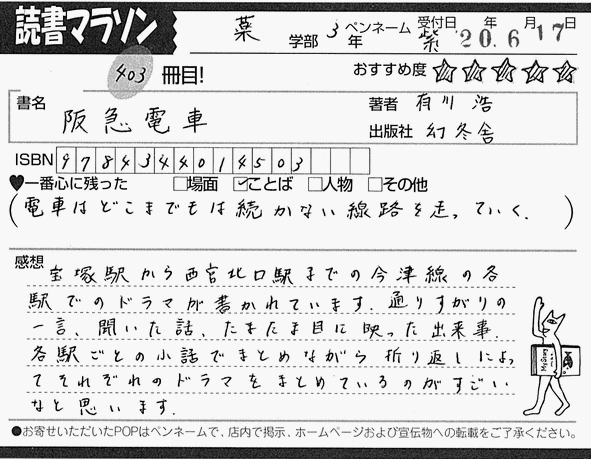 読書マラソン
薬 学部 3年 ペンネーム 紫 受付日 '20年 6月17日
403 冊目! おすすめ度 ☆☆☆☆☆
書名 阪急電車
著者 有川 浩
出版社 幻冬舎
ISBN 9784344014503
♥一番心に残った □場面 ☑ことば □人物 □その他
(電車はどこまでもは続かない線路を走っていく.)
感想 宝塚駅から西宮北口駅までの今津線の各
駅でのドラマが書かれています. 通りすがりの
一言、聞いた話、たまたま目に映った出来事.
各駅ごとの小話でまとめながら折り返しによっ
てそれぞれのドラマをまとめているのがすごい
なと思います.
Mystery
●お寄せいただいたPOPはペンネームで、店内で掲示、ホームページおよび宣伝物への転載をご了承ください。